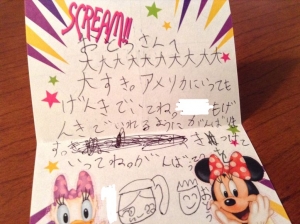 SCREAM!!
おとうさんへ
大大大大大大大大
大すき。アメリカにいっても
げんきでいてね。 もげ
んきでいれるようにがんばりま
す
いってね。がんばってね